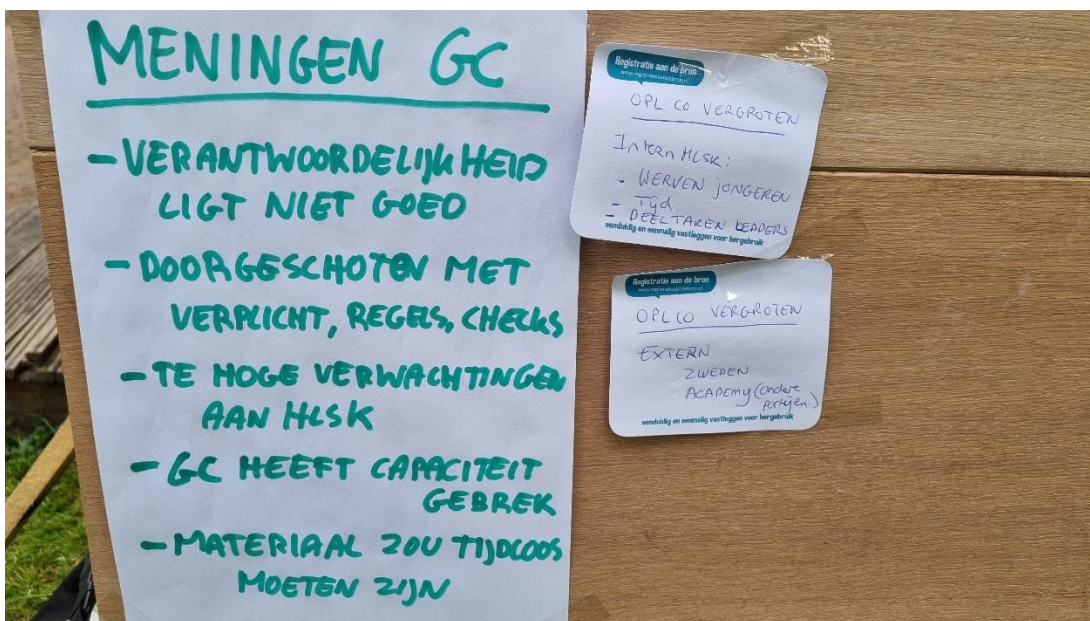 MENINGEN GC
- VERANTWOORDELIJKHEID
LIGT NIET GOED
- DOORGESCHOTEN MET
VERPLICHT, REGELS, CHECKS
- TE HOGE VERWACHTINGEN
AAN HLSK
- GC HEEFT CAPACITEIT
GEBREK
- MATERIAAL ZOU TIJDLOOS
MOETEN ZIJN
Registratie aan de bron
www.registratieaandebron.nl
OPL. CO VERGROTEN
Intern HLSK:
- WERVEN JONGEREN
- Tijd
- DEELTAKEN LEADERS
eenduidig en eenmalig vastleggen voor hergebruik
Registratie aan de bron
www.registratieaandebron.nl
OPL CO VERGROTEN
EXTERN
ZWEDEN
ACADEMY (andere
partijen)
eenduidig en eenmalig vastleggen voor hergebruik